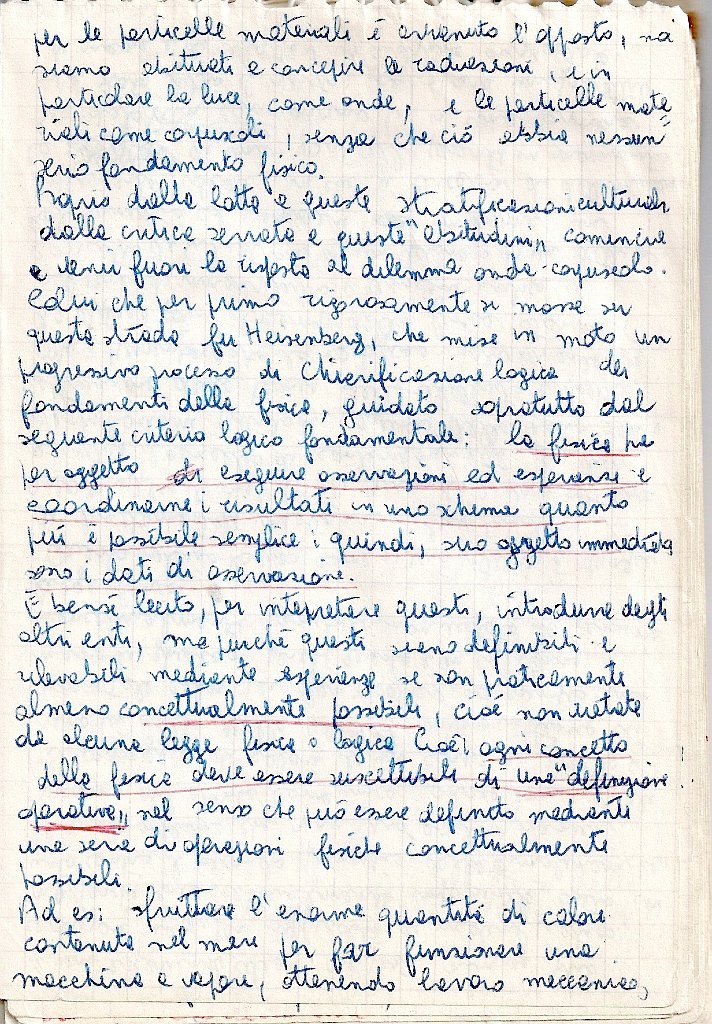 per le particelle materiali è avvenuto l'opposto, noi
siamo abituati a concepire le radiazioni, e in
particolare la luce, come onde, e le particelle mate=
riali come corpuscoli, senza che ciò abbia nessun
serio fondamento fisico.
Proprio dalla lotta a queste stratificazioni culturali
dalla critica serrata a queste "abitudini" comincia
a venir fuori la risposta al dilemma onda-corpuscolo.
Colui che per primo rigorosamente si mosse su
questa strada fu Heisenberg, che mise in moto un
progressivo processo di chiarificazione logica dei
fondamenti della fisica, guidato sopratutto dal
seguente criterio logico fondamentale: la fisica ha
per oggetto di eseguire osservazioni ed esperienze e
coordinarne i risultati in uno schema quanto
più è possibile semplice; quindi, suo oggetto immediato
sono i dati di osservazione.
È bensì lecito, per intepretare questi, introdurre degli
altri enti, ma purché questi siano definibili e
rilevabili mediante esperienze se non praticamente
almeno concettualmente possibili, cioè non vietate
da alcuna legge fisica o logica. Cioè: ogni concetto
della fisica deve essere suscettibile di una "definizione
operativa" nel senso che può essere definito mediante
una serie di operazioni fisiche concettualmente
possibili.
Ad es: sfruttare l'enorme quantità di calore
contenuta nel mare per far funzionare una
macchina a vapore, ottenendo lavoro meccanico,